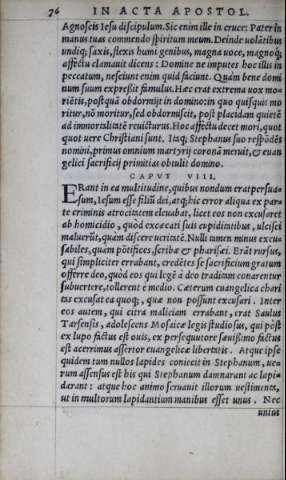 76 IN ACTA APOSTOL.
Agnoscis Iesu discipulum. Sic enim ille in cruce: Pater in
manus tuas commendo spiritum meum. Deinde volātibus
undiq; saxis, flexis humi genibus, magna uoce, magnoq;
affectu clamauit dicens: Domine ne imputes hoc illis in
peccatum, nesciunt enim quid faciunt. Quàm bene domi
num suum expreßit famulus. Hæc erat extrema uox mo=
riētis, postquā obdormijt in domino: in quo quisquis mo
ritur, nō moritur, sed obdormiscit, post placidam quietē
ad immortalitatē reuicturus. Hoc affectu decet mori, quot
quot uere Christiani sunt. Itaq; Stephanus suo respōdēs
nomini, primus omnium martyrij coronā meruit, & euan
gelici sacrificij primitias obtulit domino.
CAPVT VIII.
ERant in ea multitudine, quibus nondum erat persua=
sum, Iesum esse filiū dei, atq; hic error aliqua ex par=
te criminis atrocitatem eleuabat, licet eos non excusaret
ab homicidio, quòd excæcati suis cupiditatibus, ulcisci
maluerūt, quàm discere ueritatē. Nulli tamen minus excu
sabiles, quàm pōtifices, scribæ & pharisæi. Erāt rursus,
qui simpliciter errabant, credētes se sacrificium gratum
offerre deo, quòd eos qui legē à deo traditam conarentur
subuertere, tollerent è medio. Cæterum euangelica chari
tas excusat ea quoq;, quæ non possunt excusari. Inter
eos autem, qui citra maliciam errabant, erat Saulus
Tarsensis, adolescens Mosaicæ legis studiosus, qui pòst
ex lupo factus est ouis, ex persequutore sæuißimo factus
est acerrimus assertor euangelicæ libertatis. Atque ipse
quidem tum nullos lapides coniecit in Stephanum, ue=
rum assensus est his qui Stephanum damnarant ac lapi=
darant: atque hoc animo seruauit illorum uestimenta,
ut in multorum lapidantium manibus esset unus. Nec
unius